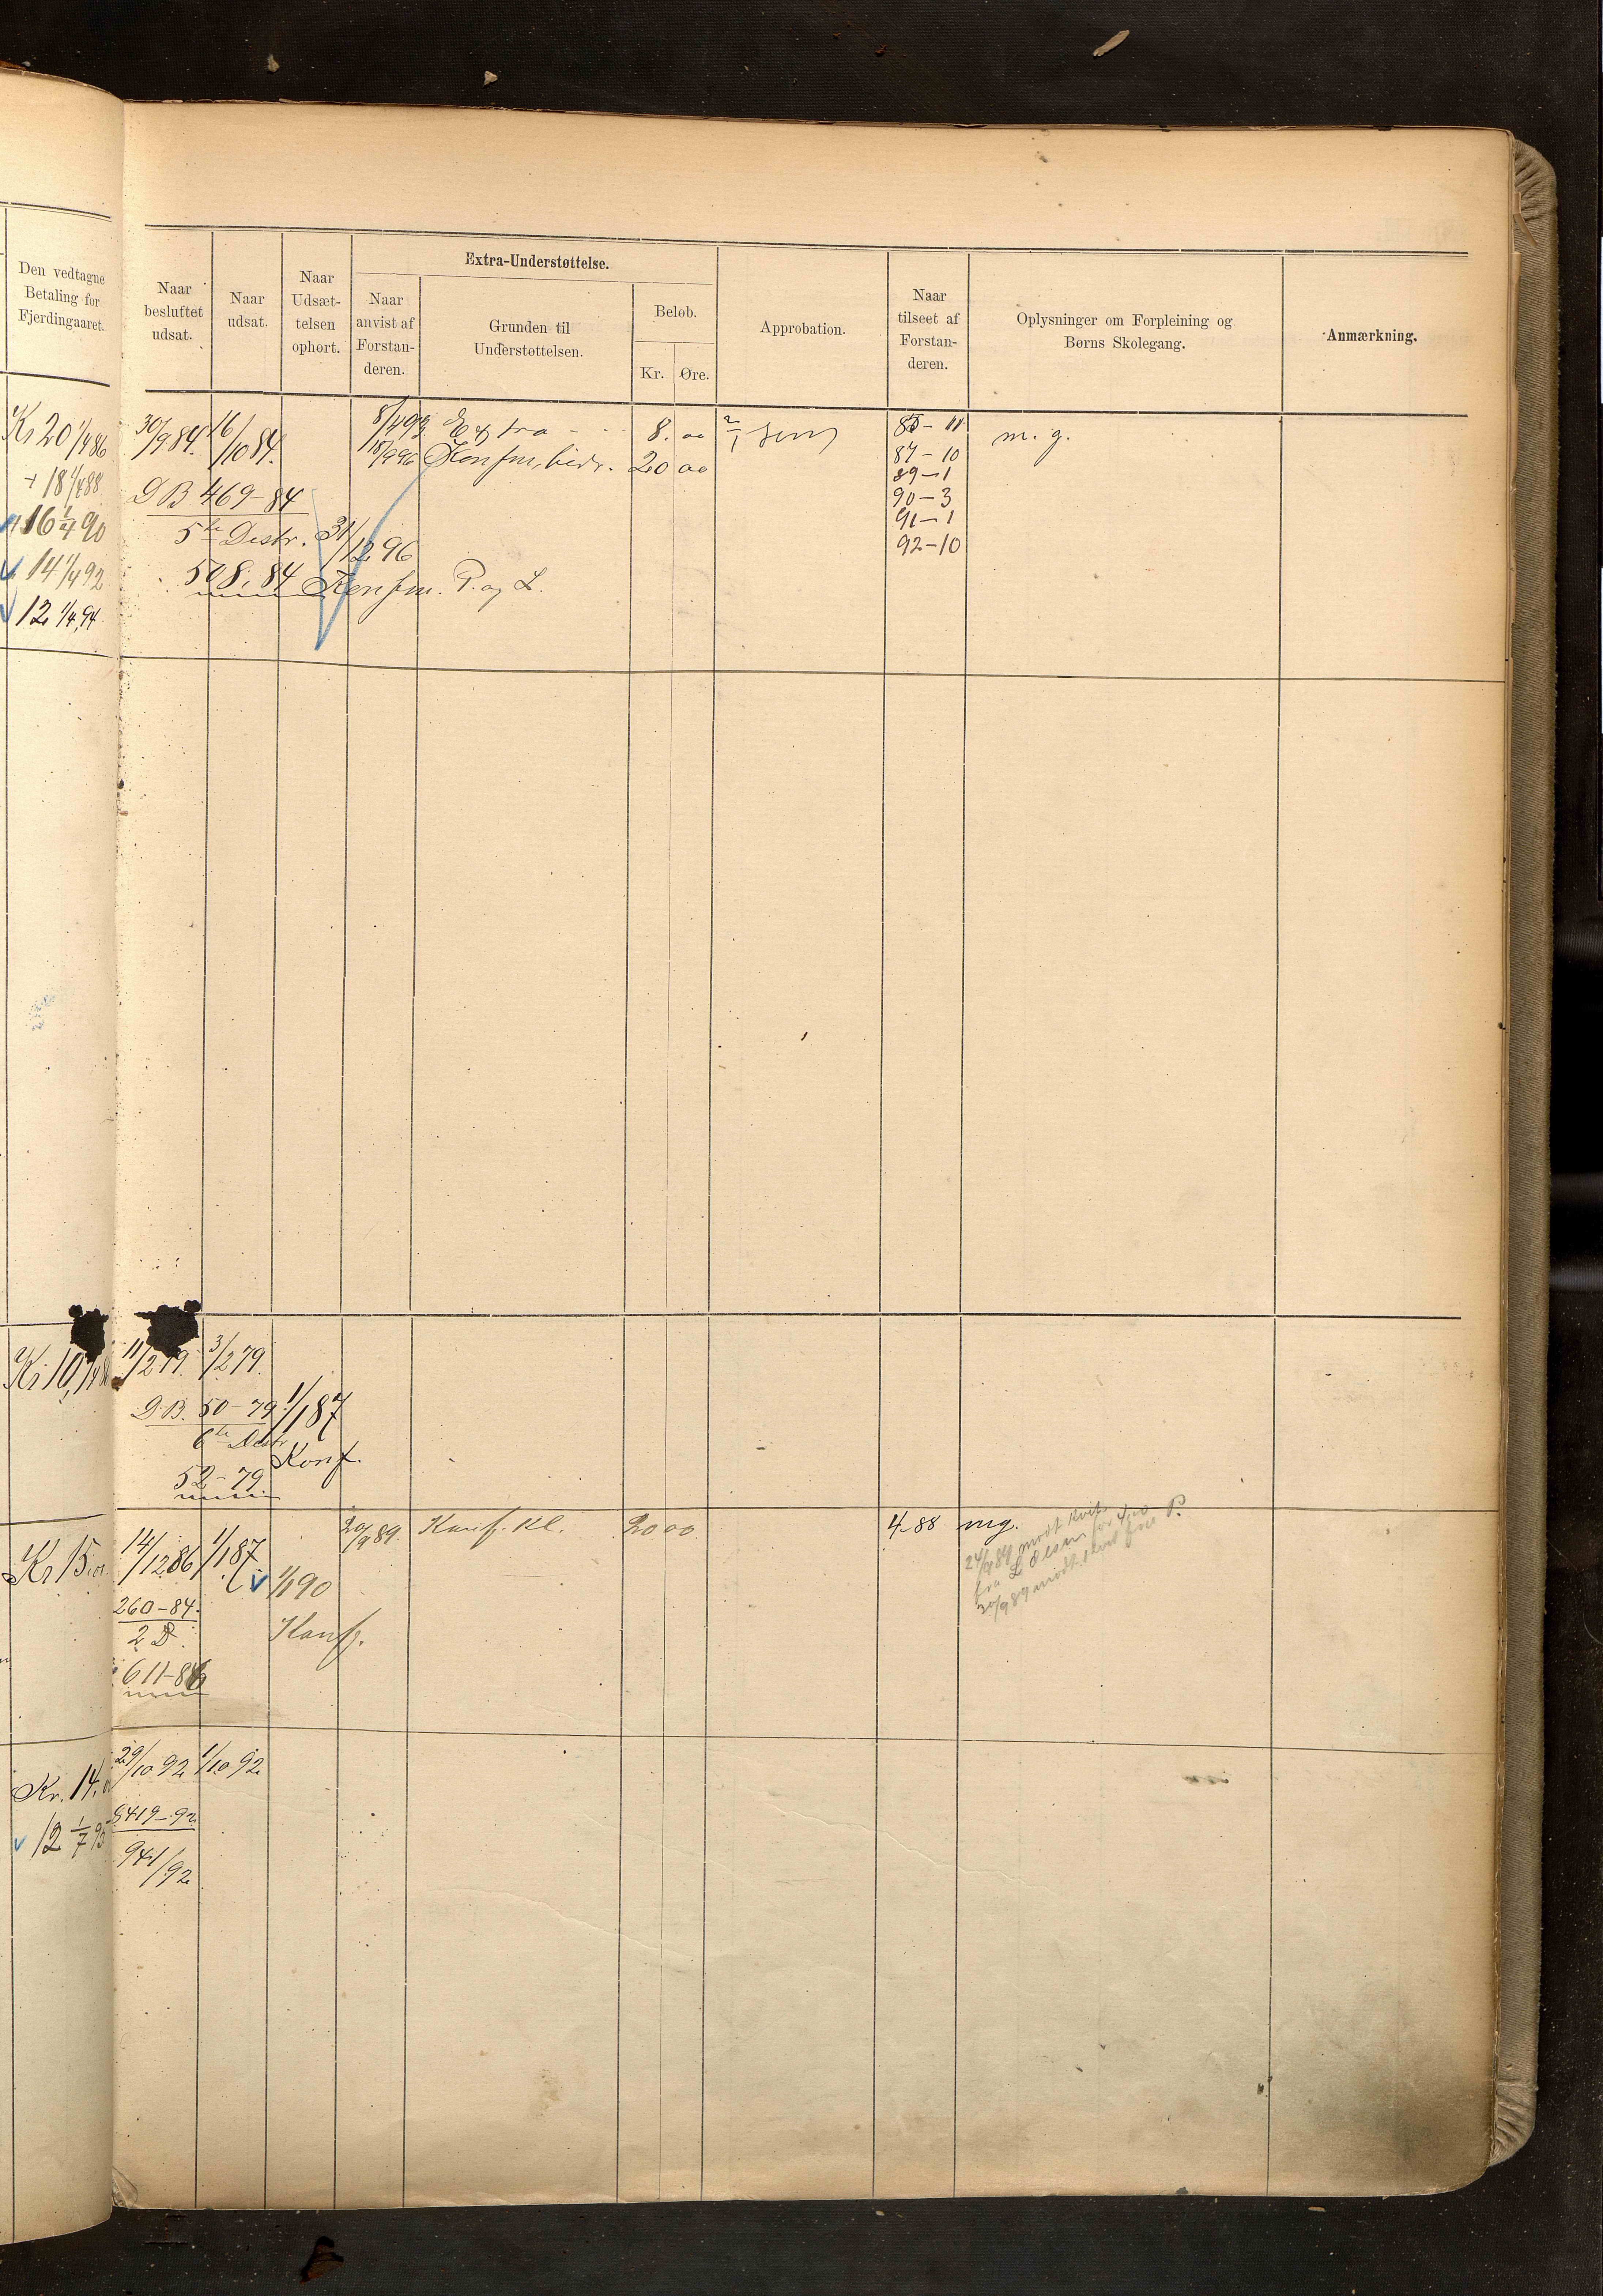 Den vedtagne
Betaling for
Fjerdingaaret.
Naar
besluttet
udsat.
Naar
udsat.
Naar
Udsæt-
telsen
ophørt.
Extra-Understøttelse.
Naar
anvist af
Forstan-
deren.
Grunden til
Understøttelsen.
Beløb.
Kr. Øre.
Approbation.
Naar
tilseet af
Forstan-
deren.
Oplysninger om Forpleining og
Børns Skolegang.
Anmærkning.
Kr 20 1/4 86
+ 18 1/4 88
16 1/4 90
14 1/4 92
12 1/4 94
30/9 84. 16/10 84.
D B 469-84
5te Distr.
508. 84
31/12 96
Konfm. P. og L.
8/4 93 Extra 8. 00
18/9 96 Konfm. bidr. 20 00
85-11 m. g.
87-10
89-1
90-3
91-1
92-10
Kr 10,
11/2 79. 3/2 79.
D.B. 50-79
6te Distr
52-79
1/1 87
Konf.
Kr 15.
14/12 86 1/1 87
260-84.
2 D.
611-86
1/1 90
Konf.
20/9 89. Konf. Kl. 20 00
4-88 mg.
24/9 89 modt Kvit
fra L Olsen for 4,00
30/9 89 modt. Kvit fra P.
Kr. 14,
12 1/7 95
29/10 92 1/10 92
419-92
941/92